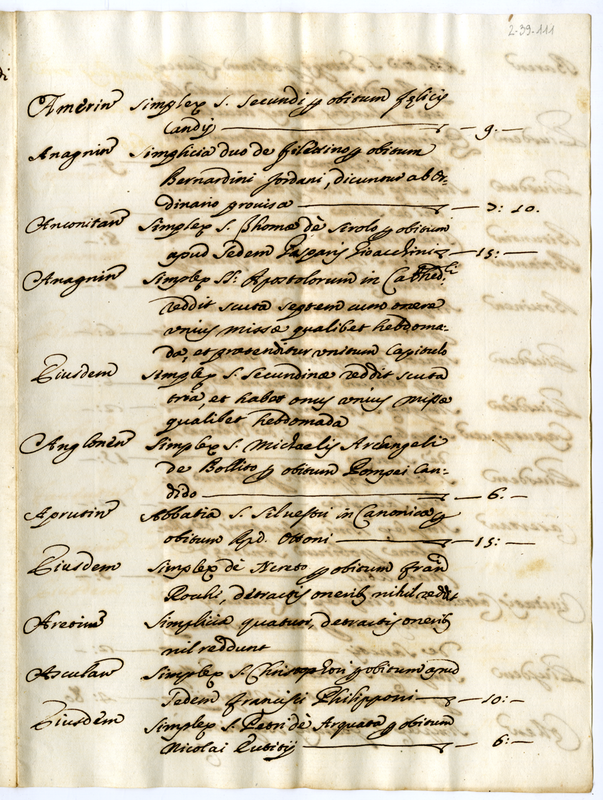 2-39-111
Amerin Simplex S. Secundi p obitum Felicis
Candij — 9. —
Anagnin Simplicia duo de Filettino p obitum
Bernardini Jordani, dicuntur ab Or-
dinario provisa — 7: 10.
Anconitan Simplex S. Thomæ de Sirolo p obitum
apud Sedem Gasparis Gioacchini — 15: —
Anagnin Simplex SS: Apostolorum in Cathed.li
reddit scuta septem cum onere
unius missæ qualibet hebdoma-
da, et prætenditur unitum Capitulo
Eiusdem Simplex S. Secundinæ reddit scuta
tria, et habet onus unius missæ
qualibet hebdomada
Anglonen Simplex S. Michaelis Archangeli
de Bollito p obitum Pompei Can-
dido — 6: —
Aprutin Abbatia S. Silvestri in Canonica p
obitum Apd. — 15: —
Eiusdem Simplex de Nereto p obitum Fran
Pauli, detractis oneribs nihil reddit
Aretin Simplicia quatuor, detractis oneribs
nil reddunt
Asculan Simplex S. Christophori p obitum apud
Sedem Francisci Philipponi — 10: —
Eiusdem Simplex S. Petri de Arquata p obitum
Nicolai — 6: —